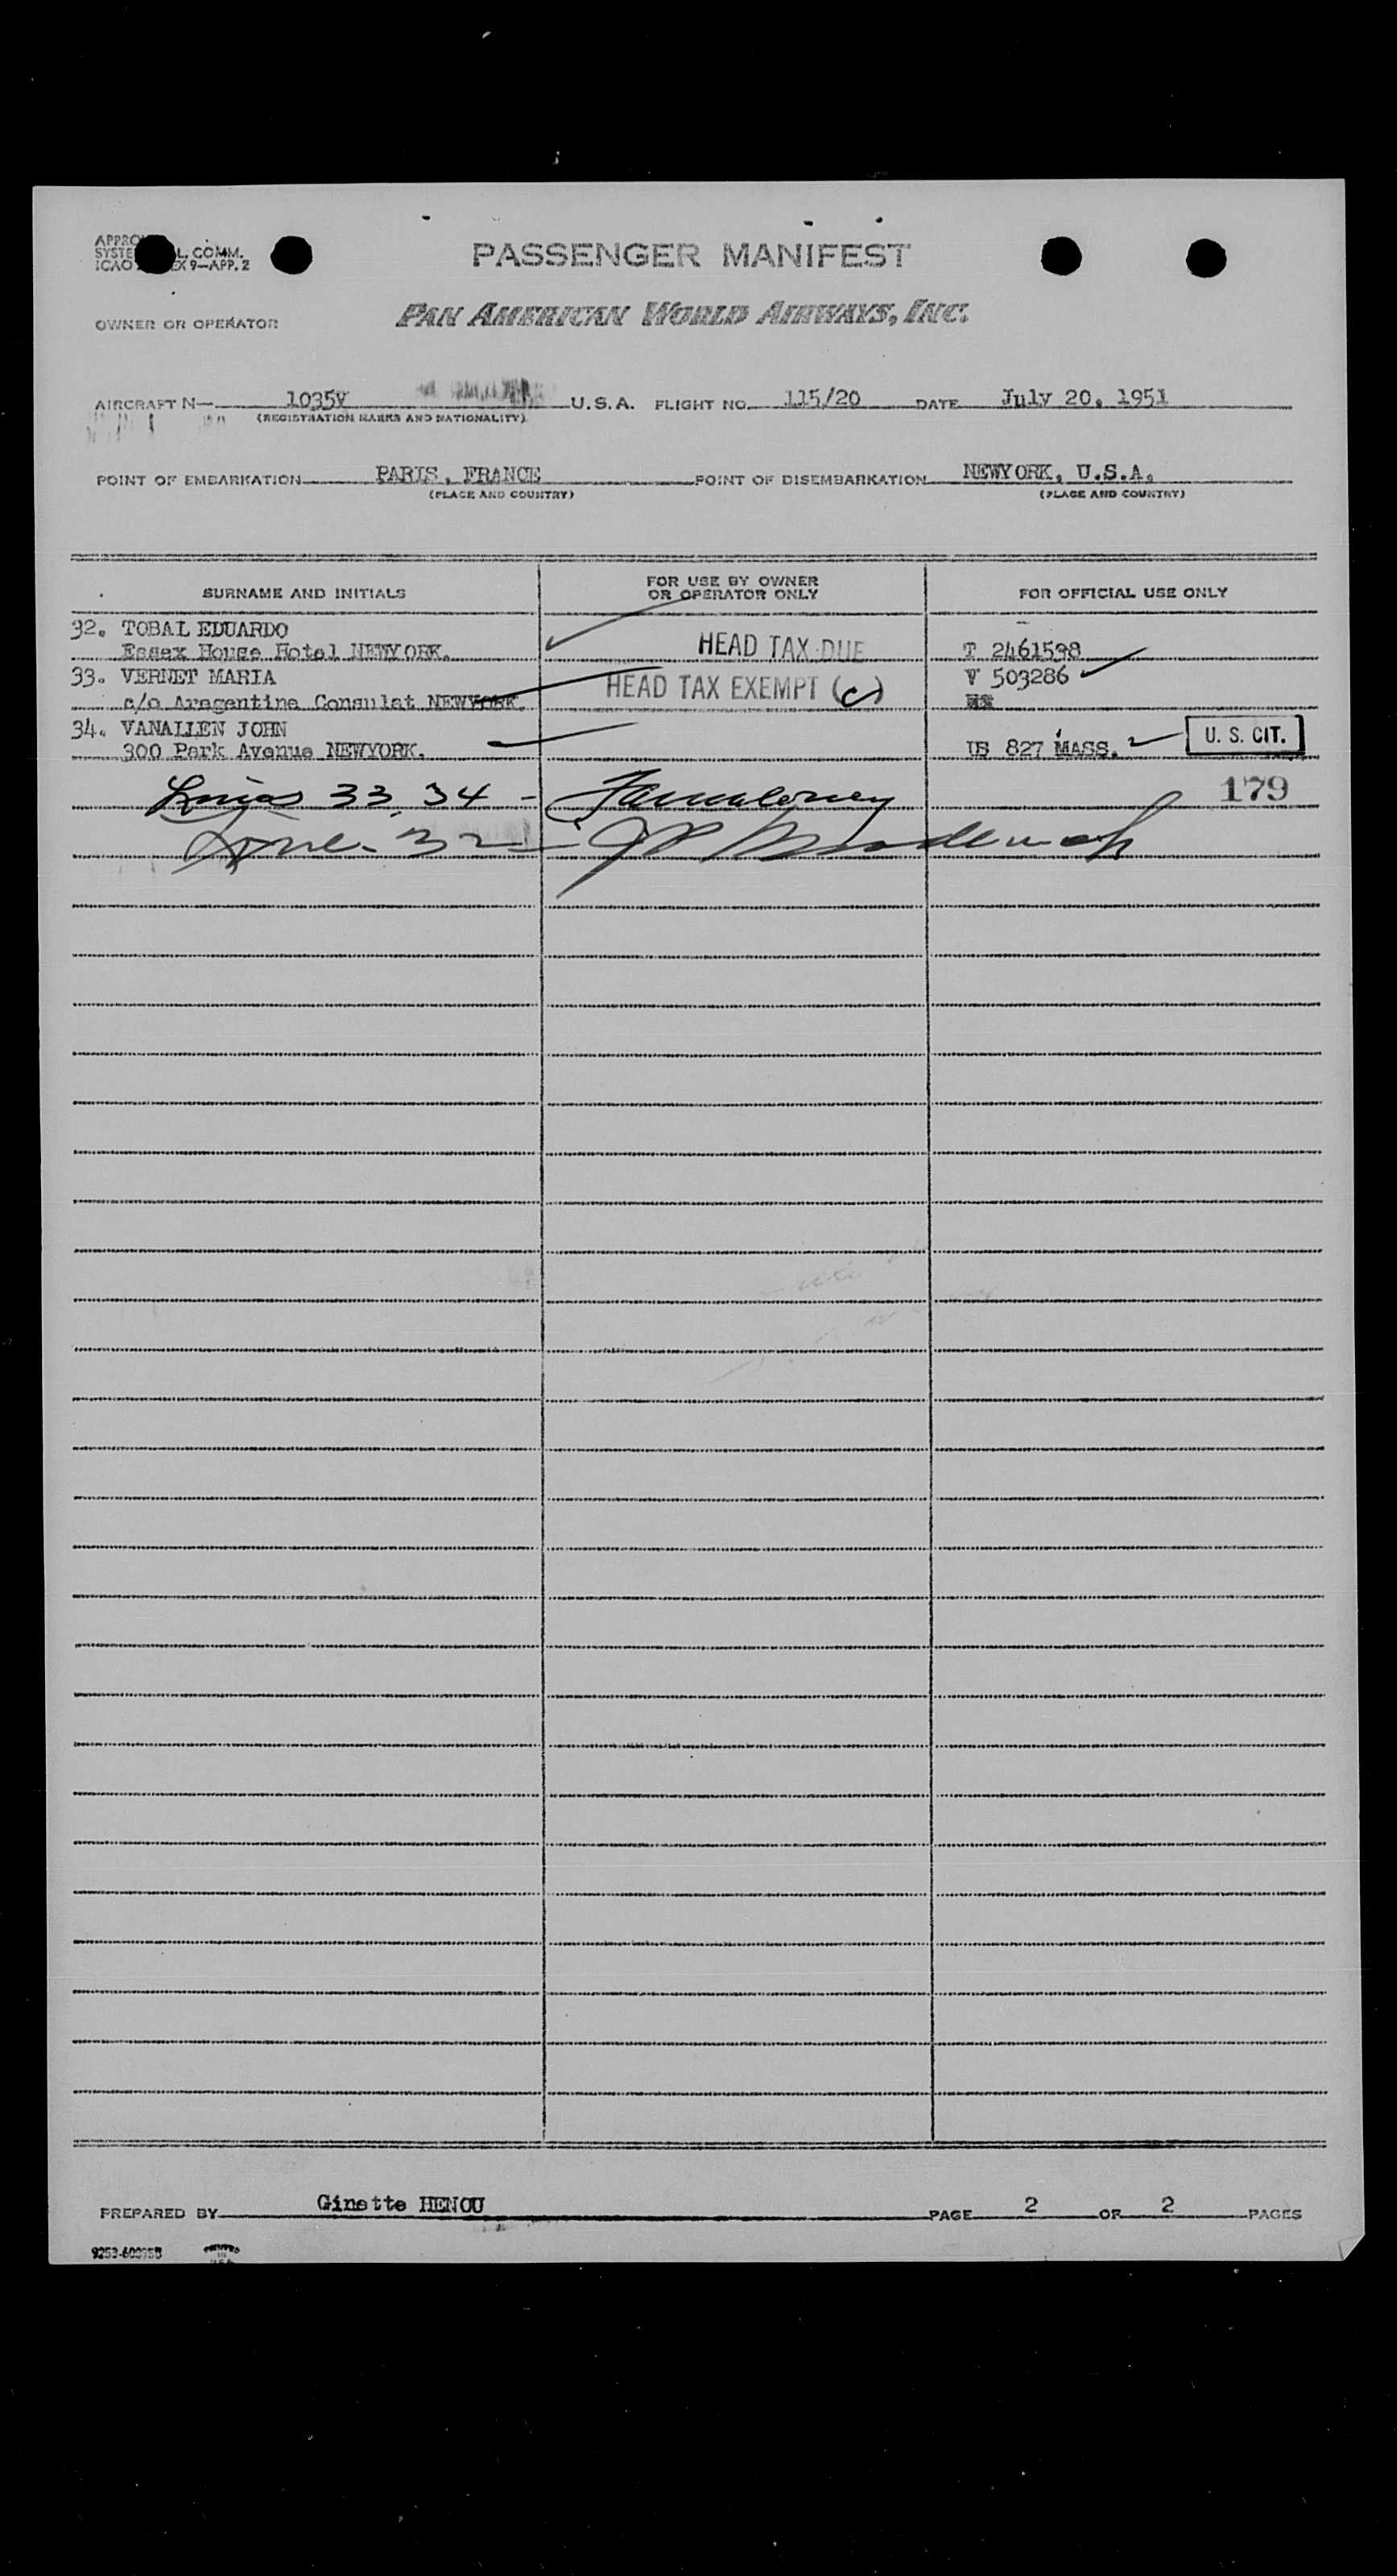 PASSENGER MANIFEST
L. COMM.
ICAO EX 9—APP. 2
OWNER OR OPERATOR PAN AMERICAN WORLD AIRWAYS, INC.
AIRCRAFT N— 1035V U.S.A. FLIGHT NO. 115/20 DATE July 20, 1951
(REGISTRATION MARKS AND NATIONALITY)
POINT OF EMBARKATION PARIS, FRANCE POINT OF DISEMBARKATION NEWYORK, U.S.A.
(PLACE AND COUNTRY) (PLACE AND COUNTRY)
SURNAME AND INITIALS FOR USE BY OWNER OR OPERATOR ONLY FOR OFFICIAL USE ONLY
32. TOBAL EDUARDO
Essex House Hotel NEWYORK. HEAD TAX DUE T 2461598
33. VERNET MARIA HEAD TAX EXEMPT (c) V 503286
c/o Aragentine Consulat NEWYORK.
34. VANALLEN JOHN
300 Park Avenue NEWYORK. 827 MASS. U. S. CIT.
Lines 33, 34 - 179
Line - 32 -
PREPARED BY Ginette HENOU PAGE 2 OF 2 PAGES